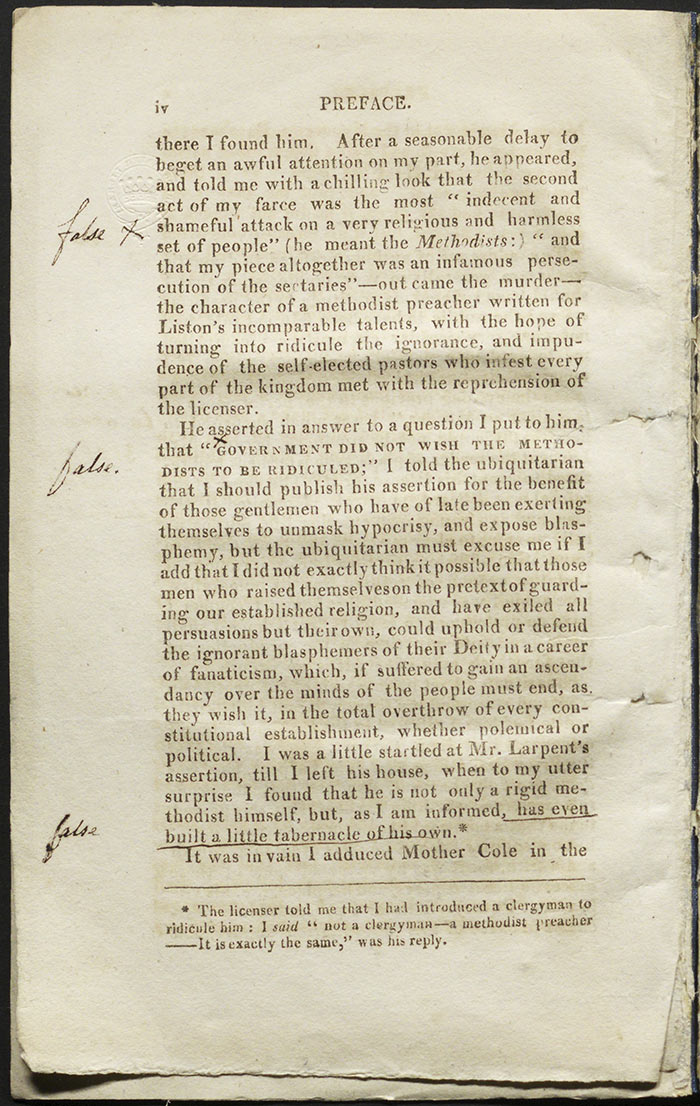 iv PREFACE.
there I found him. After a seasonable delay to
beget an awful attention on my part, he appeared,
and told me with a chilling look that the second
act of my farce was the most “ indecent and
false + shameful attack on a very religious and harmless
set of people” (he meant the Methodists:) “ and
that my piece altogether was an infamous perse-
cution of the sectaries”—out came the murder—
the character of a methodist preacher written for
Liston's incomparable talents, with the hope of
turning into ridicule the ignorance, and impu-
dence of the self-elected pastors who infest every
part of the kingdom met with the reprehension of
the licenser.
He asserted in answer to a question I put to him,
that “GOVERNMENT DID NOT WISH THE METHO-
false. DISTS TO BE RIDICULED;” I told the ubiquitarian
that I should publish his assertion for the benefit
of those gentlemen who have of late been exerting
themselves to unmask hypocrisy, and expose blas-
phemy, but the ubiquitarian must excuse me if I
add that I did not exactly think it possible that those
men who raised themselves on the pretext of guard-
ing our established religion, and have exiled all
persuasions but their own, could uphold or defend
the ignorant blasphemers of their Deity in a career
of fanaticism, which, if suffered to gain an ascen-
dancy over the minds of the people must end, as
they wish it, in the total overthrow of every con-
stitutional establishment, whether polemical or
political. I was a little startled at Mr. Larpent's
assertion, till I left his house, when to my utter
surprise I found that he is not only a rigid me-
thodist himself, but, as I am informed, has even
false built a little tabernacle of his own.*
It was in vain I adduced Mother Cole in the
* The licenser told me that I had introduced a clergyman to
ridicule him : I said “ not a clergyman—a methodist preacher
——It is exactly the same,” was his reply.